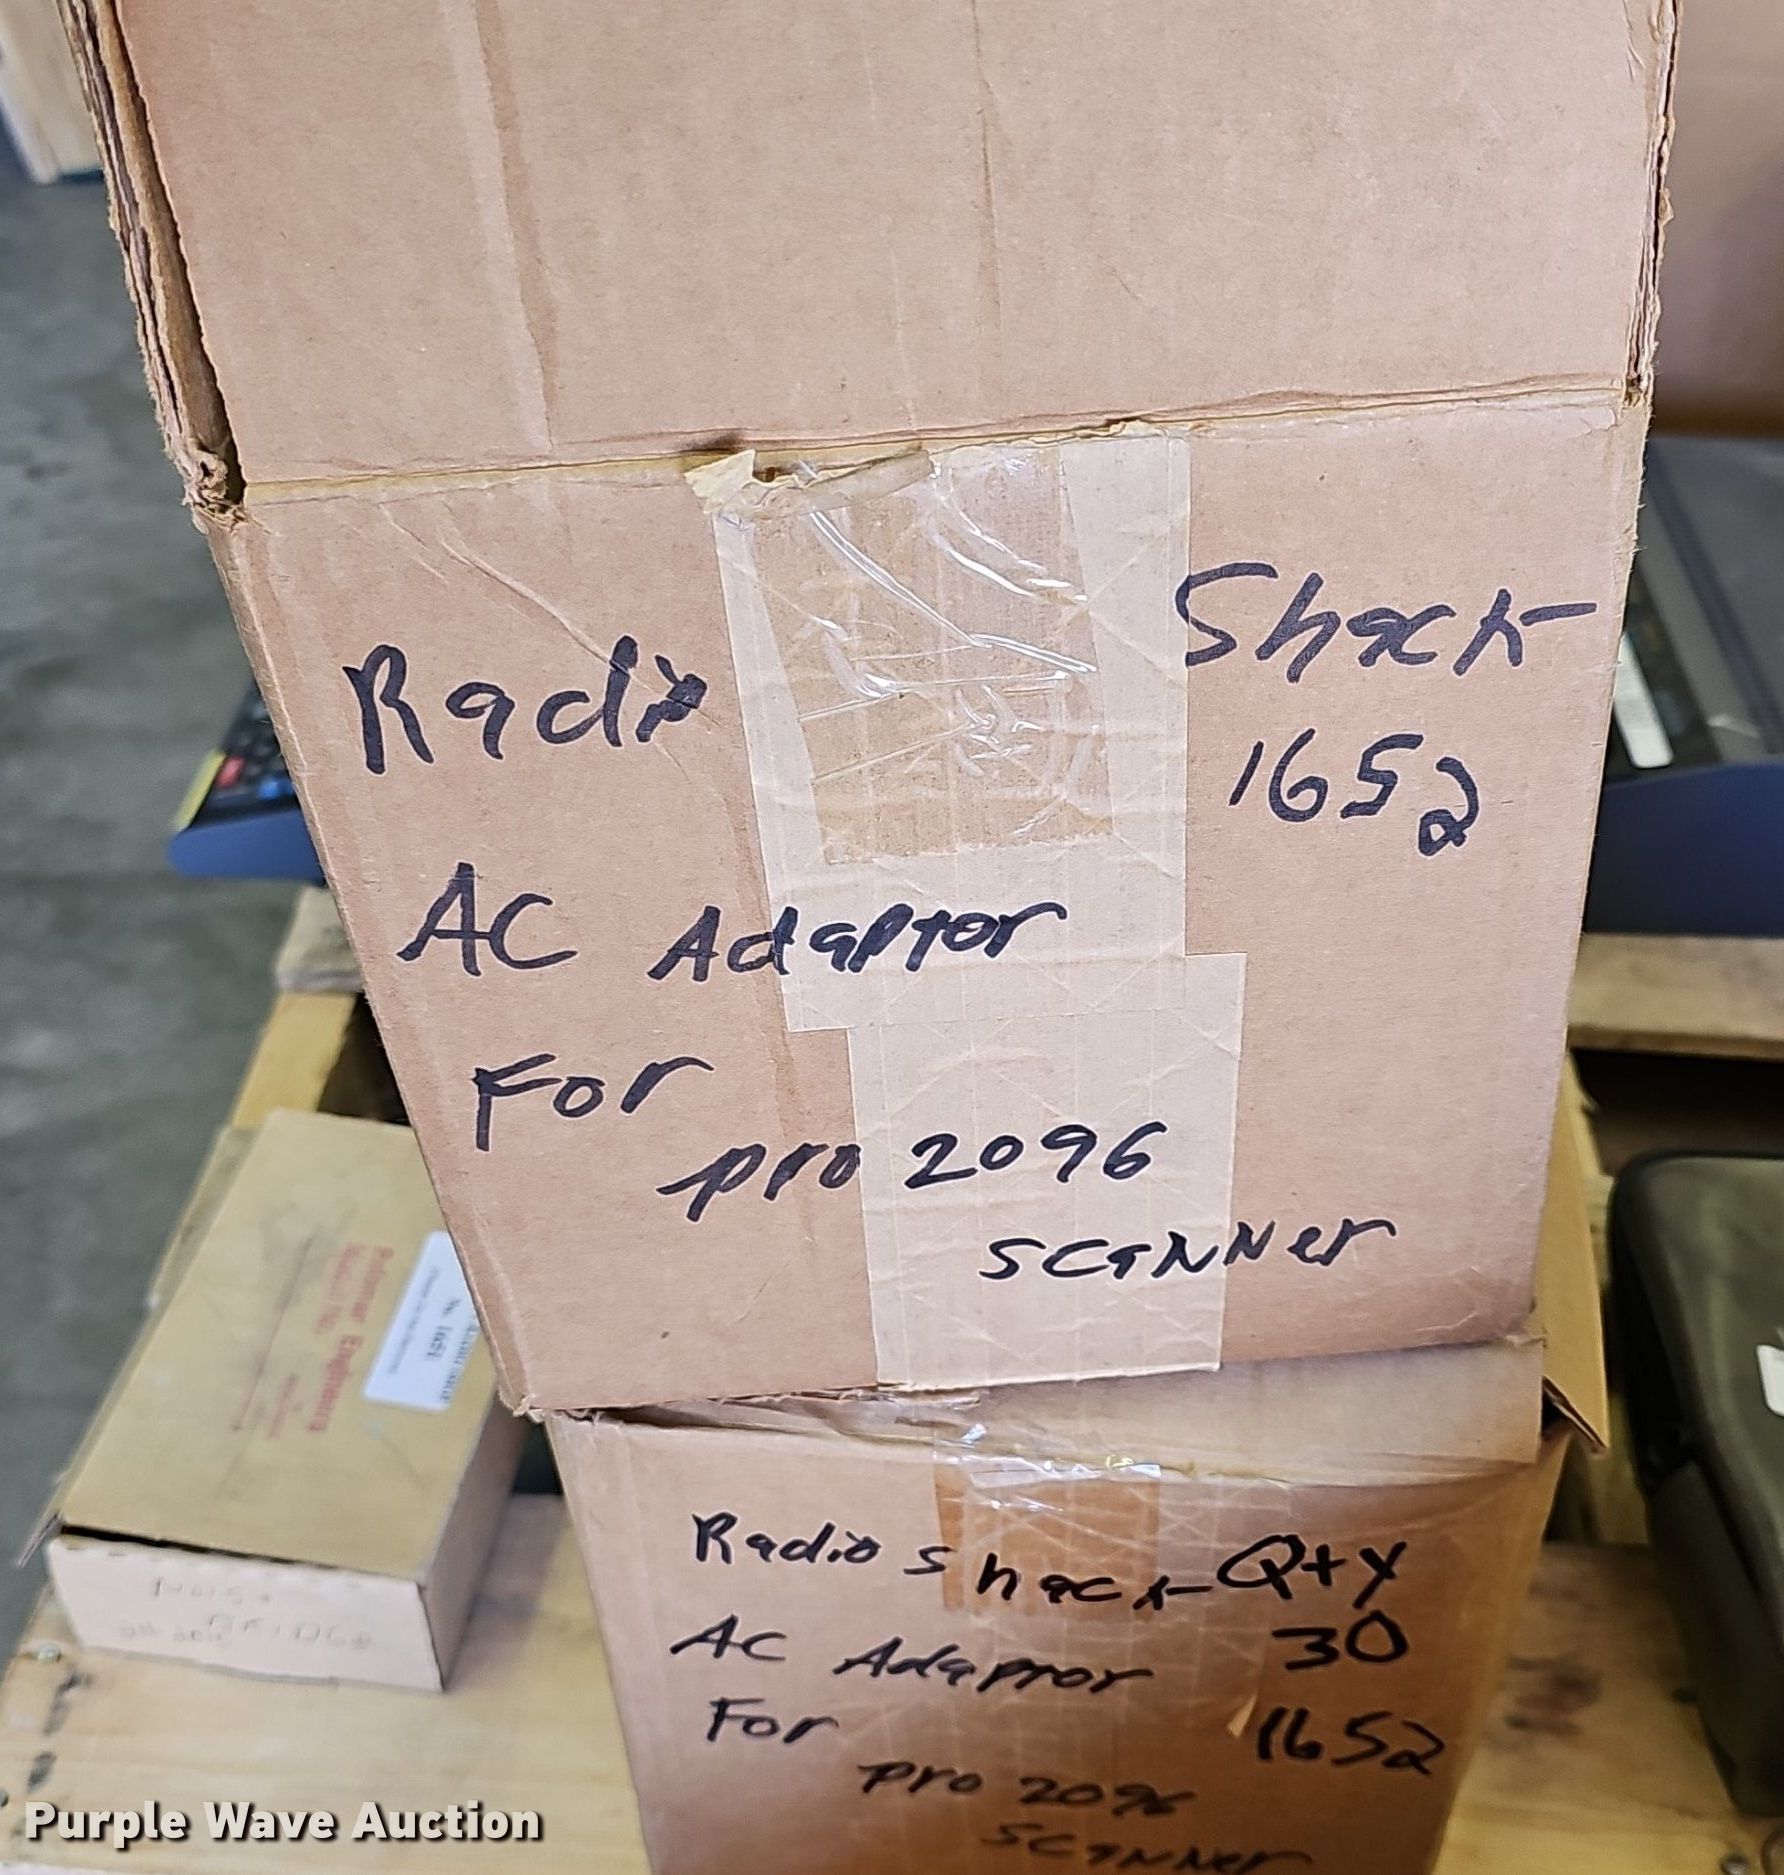 Radio Shack
1652
AC Adaptor
For
pro 2096
scanner
Radio Shack Qty
AC Adaptor 30
For 1652
pro 2096
scanner
Purple Wave Auction